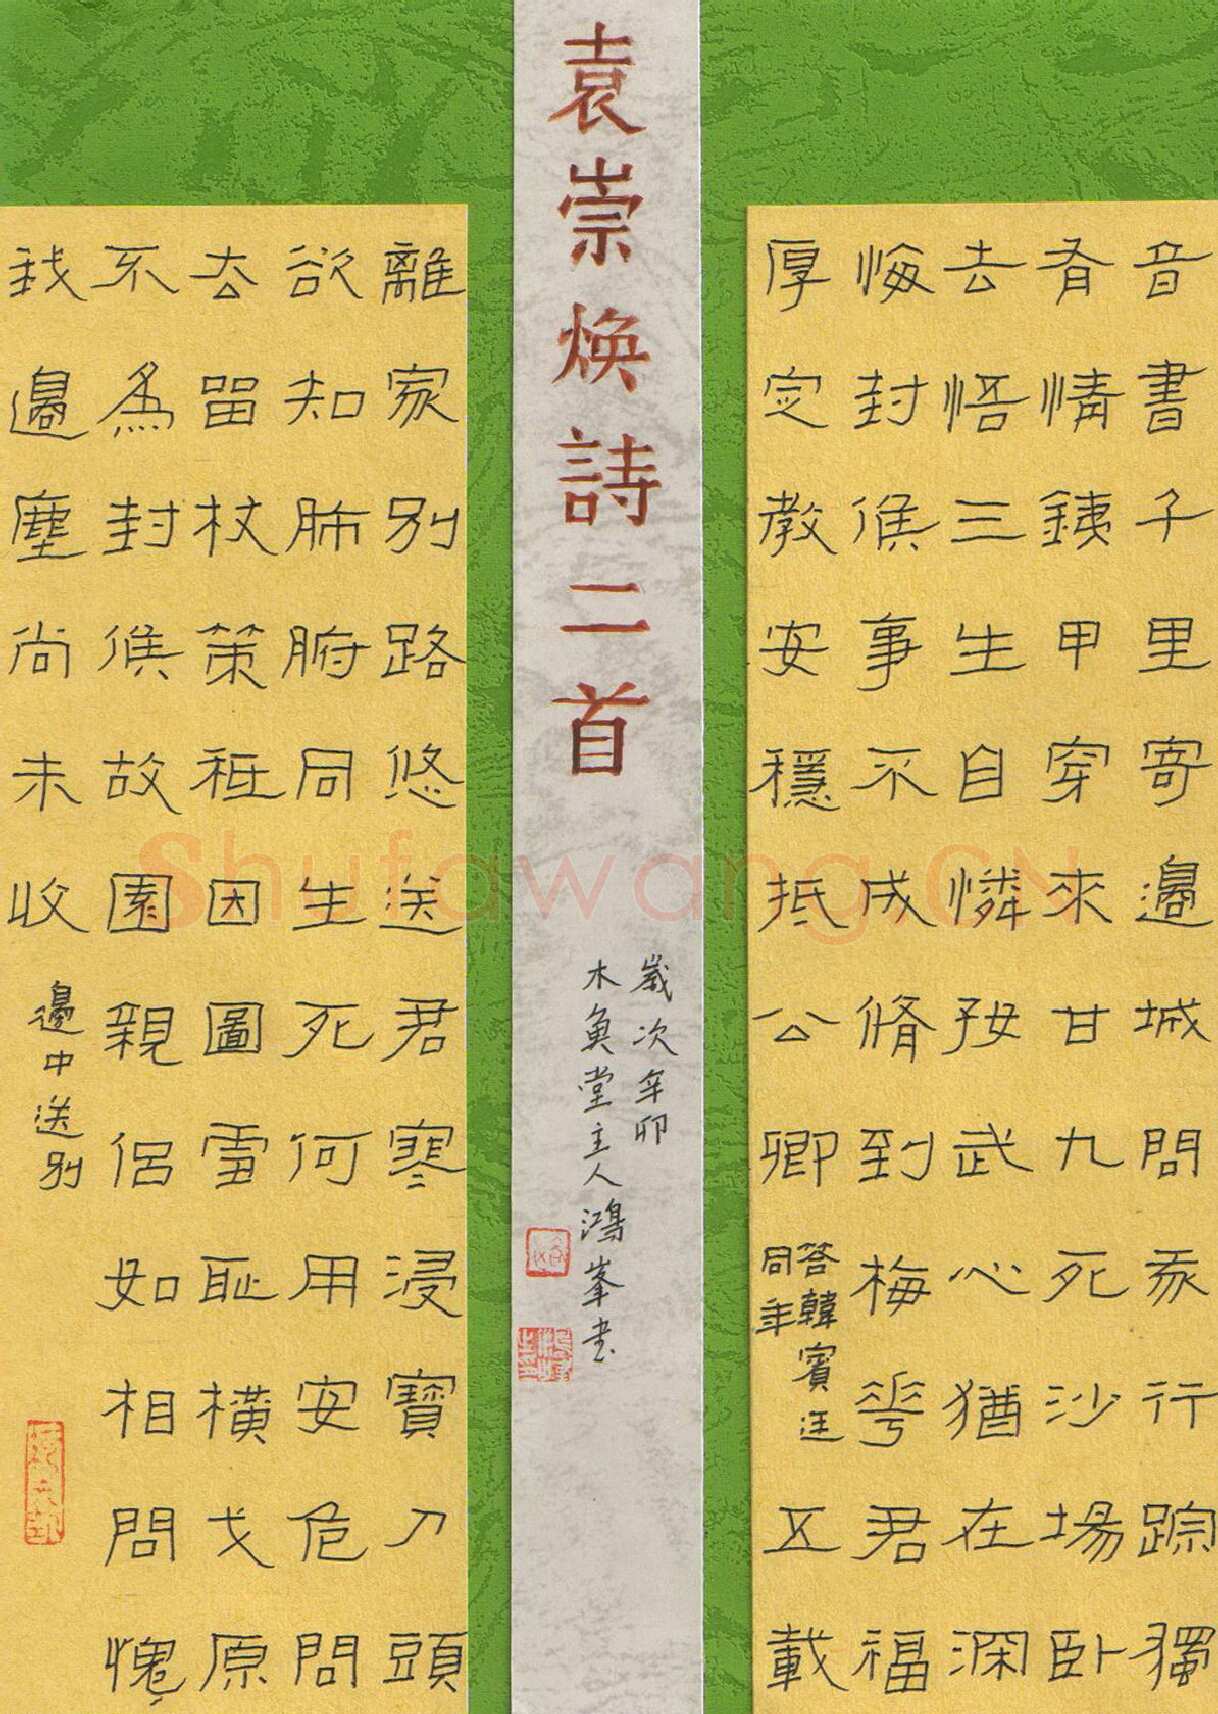 音書千里寄邊城問行踪獨
有情銕甲穿來甘九死沙場臥
去悟三生自憐投武心猶在深
悔封侯事不成脩到梅花君福
厚定教安穩抵公卿
答韓賓廷
同年
五載
袁崇焕詩二首
歲次辛卯
木魚堂主人鴻峯书
離家別路悠送君寒浸寶刀頭
欲知肺腑同生死何用安危問
去留杖策祗因圖雪恥橫戈原
不為封侯故園親侶如相問愧
我邊塵尚未收
邊中送別
shufawang.CN